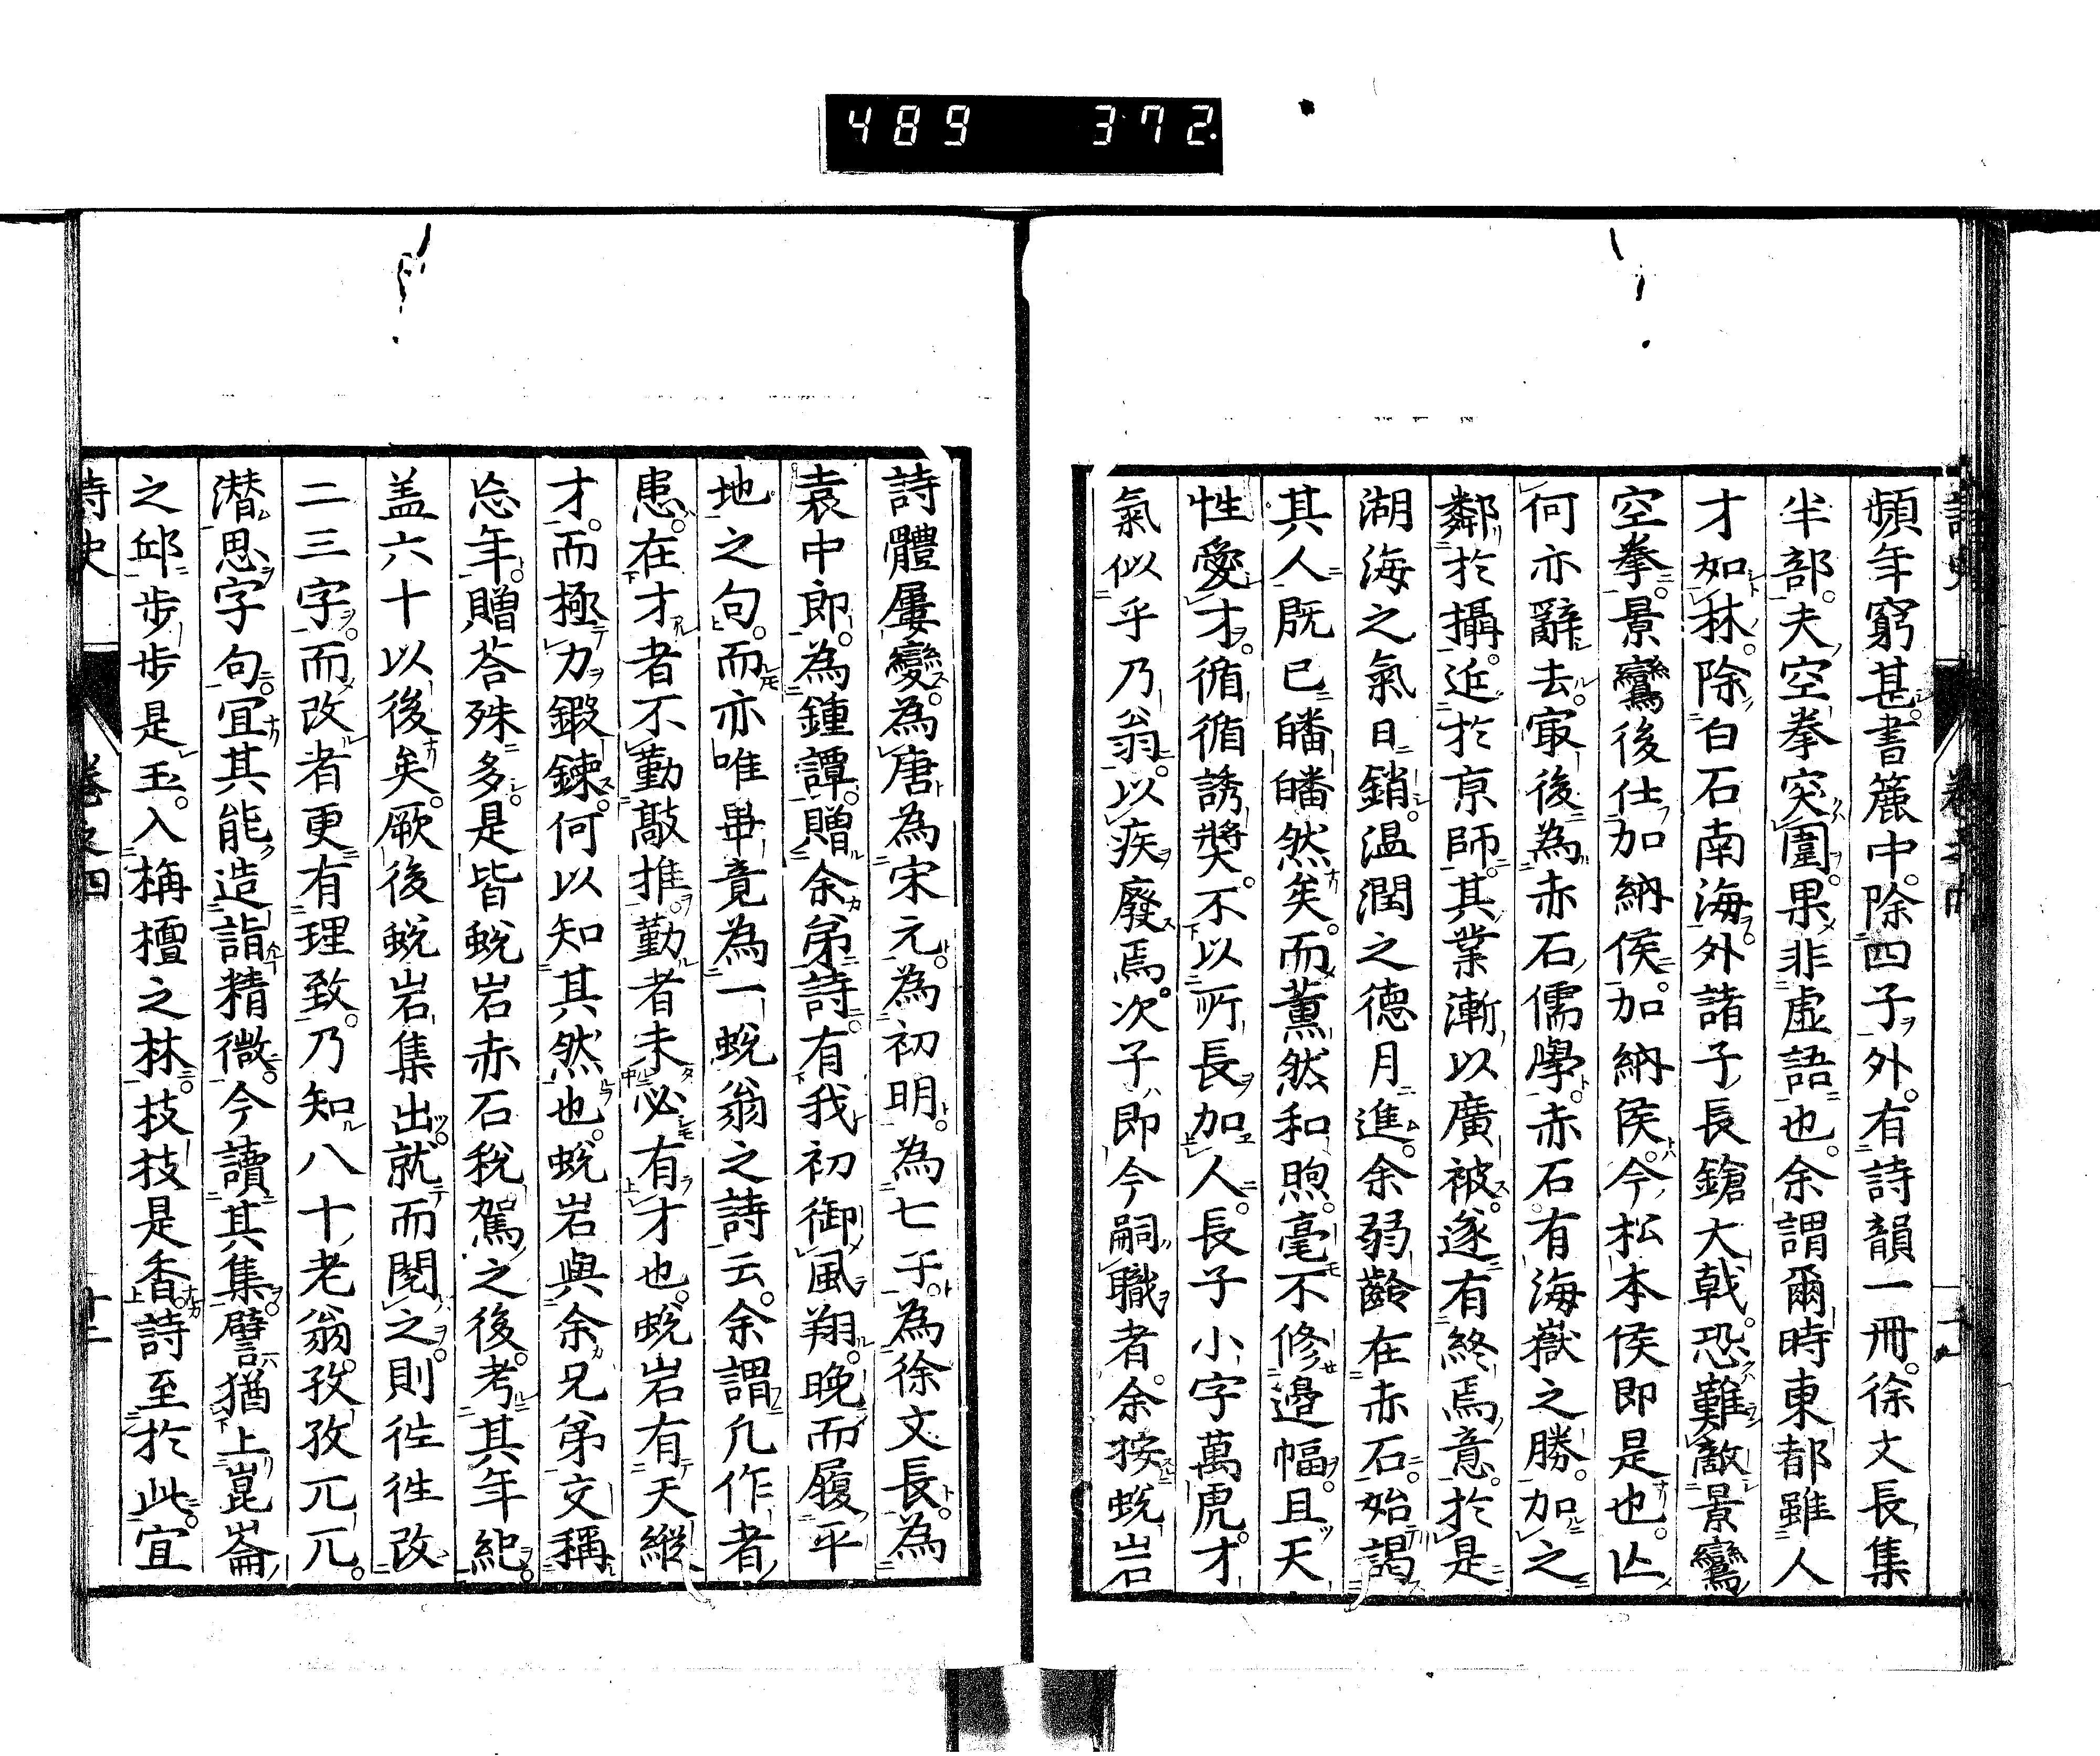 489 372
頻年窮甚。書簏中。除四子外。有詩韻一冊。徐文長集
半部。夫空拳突圍。果非虛語也。余謂爾時東都雖人
才如林。除白石南海外。諸子長鎗大戟。恐難敵景鸞
空拳。景鸞後仕加納侯。加納侯。今松本侯即是也。亾
何亦辭去。㝡後為赤石儒學。赤石有海嶽之勝。加之
鄰於攝。近於京師。其業漸以廣被。遂有終焉意。於是
湖海之氣日銷。温潤之德月進。余弱齡在赤石。始謁
其人。既已皤皤然矣。而薰然和煦。毫不修邊幅。且天
性愛才。循循誘奬。不以所長加人。長子小字萬虎。才
氣似乎乃翁。以疾廢焉。次子即今嗣職者。余按蛻岩
詩體屢變。為唐為宋元。為初明。為七子。為徐文長。為
袁中郎。為鍾譚。贈余弟詩。有我初御風翔。晚而履平
地之句。而亦唯畢竟為一蛻翁之詩云。余謂凡作者
患。在才者不勤敲推。勤者未必有才也。蛻岩有天縱
才。而極力鍛鍊。何以知其然也。蛻岩與余兄弟。文稱
忘年。贈荅殊多。是皆蛻岩赤石稅駕之後。考其年紀。
盖六十以後矣。厥後蛻岩集出。就而閱之。則徃徃改
二三字。而改者更有理致。乃知八十老翁。孜孜兀兀。
潜思字句。宜其能造詣精微。今讀其集。譬猶上崑崙
之邱。步步是玉。入栴檀之林。枝枝是香。詩至於此。宜
詩史 卷之四